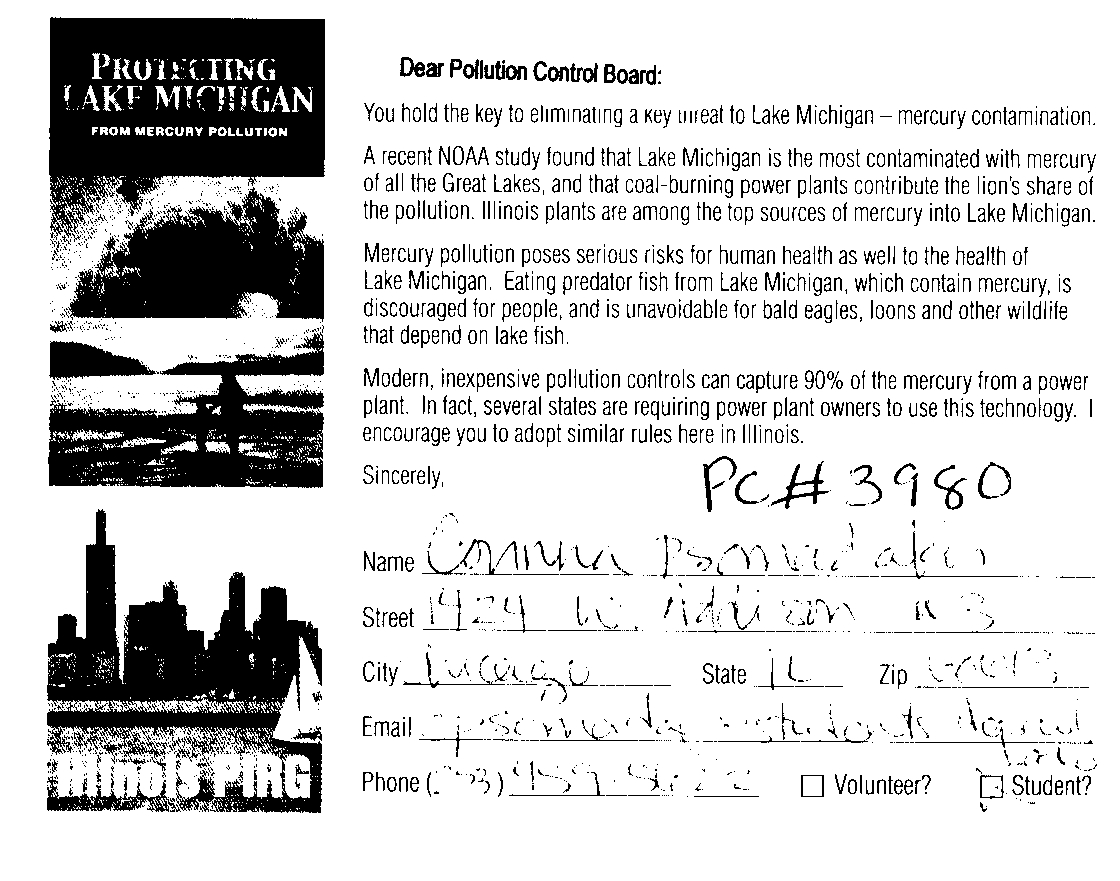 PROTECTING
LAKE MICHIGAN
FROM MERCURY POLLUTION
Illinois PIRG
Dear Pollution Control Board:
You hold the key to eliminating a key threat to Lake Michigan – mercury contamination.
A recent NOAA study found that Lake Michigan is the most contaminated with mercury
of all the Great Lakes, and that coal-burning power plants contribute the lion's share of
the pollution. Illinois plants are among the top sources of mercury into Lake Michigan.
Mercury pollution poses serious risks for human health as well to the health of
Lake Michigan. Eating predator fish from Lake Michigan, which contain mercury, is
discouraged for people, and is unavoidable for bald eagles, loons and other wildlife
that depend on lake fish.
Modern, inexpensive pollution controls can capture 90% of the mercury from a power
plant. In fact, several states are requiring power plant owners to use this technology. I
encourage you to adopt similar rules here in Illinois.
Sincerely,
PC# 3980
Name
Street 1424 W. Addison
City State IL Zip
Email
Phone
Volunteer? Student?